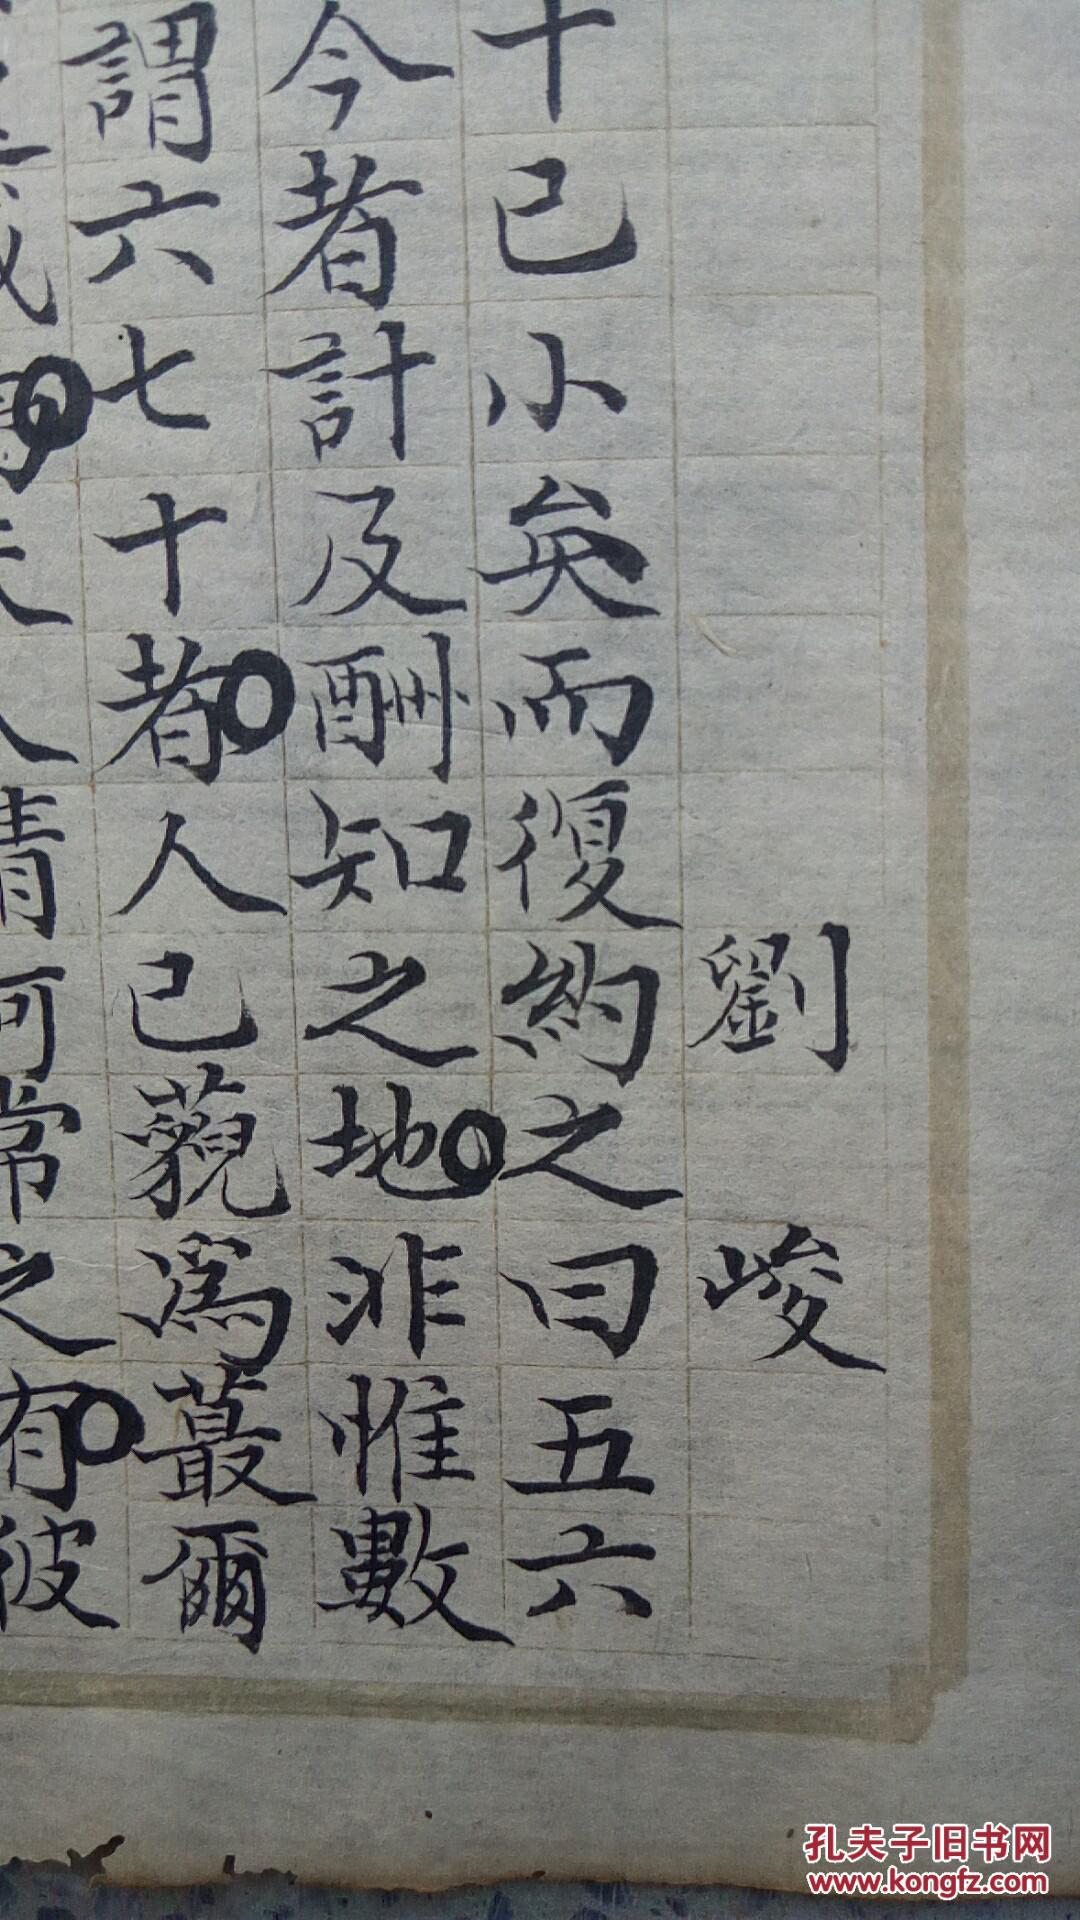 劉峻
十已小矣而復約之曰五六
今者計及酬知之地非惟數
謂六七十者人已藐爲蕞爾
人情何常之有彼
孔夫子旧书网
www.kongfz.com